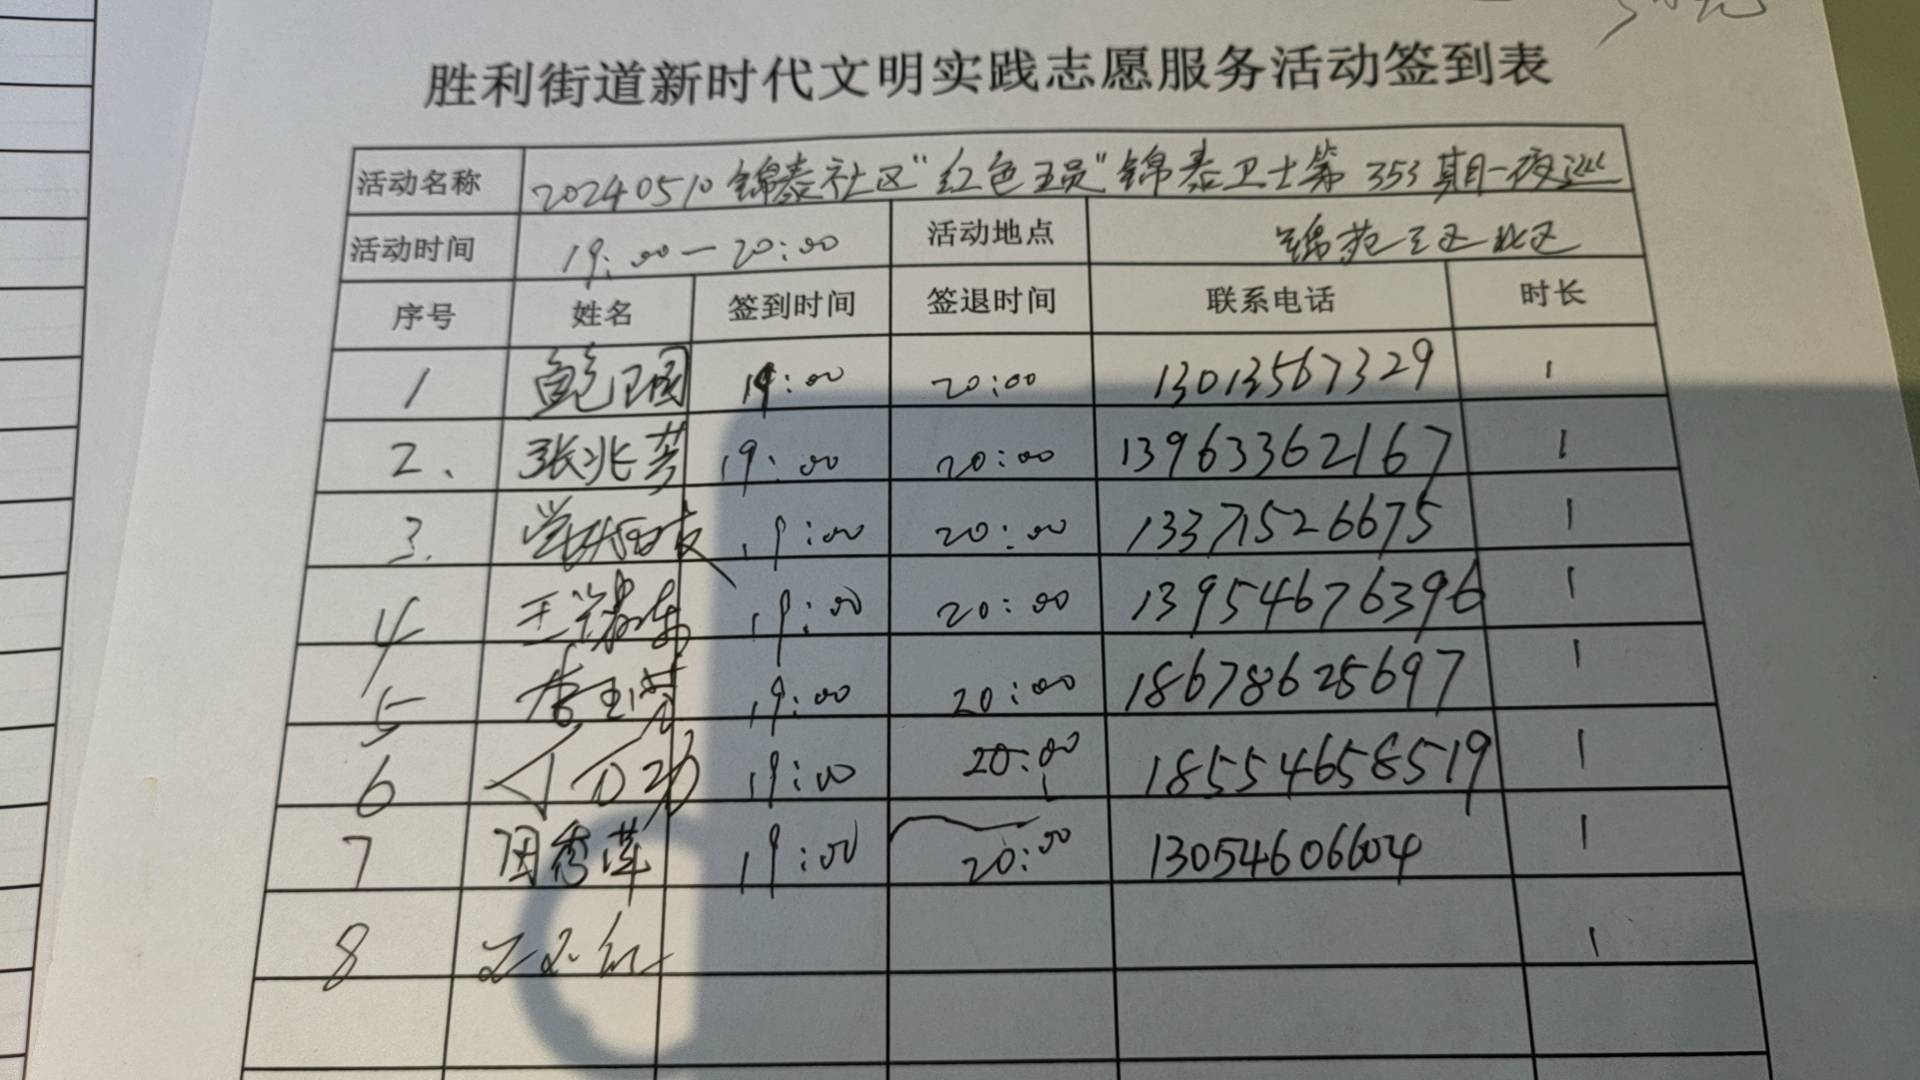 胜利街道新时代文明实践志愿服务活动签到表
活动名称 20240510锦泰社区"红色五员"锦泰卫士第353期-夜巡
活动时间 19:00-20:00 活动地点 锦苑三区北区
序号 姓名 签到时间 签退时间 联系电话 时长
1 鲍卫国 19:00 20:00 13013567329 1
2、 张兆芳 19:00 20:00 13963362167 1
3. 19:00 20:00 13371526675 1
4 王 19:00 20:00 13954676396 1
5 李玉 19:00 20:00 18678625697 1
6 19:00 20:00 18554658519 1
7 周秀莲 19:00 20:00 13054606604 1
8 红 1